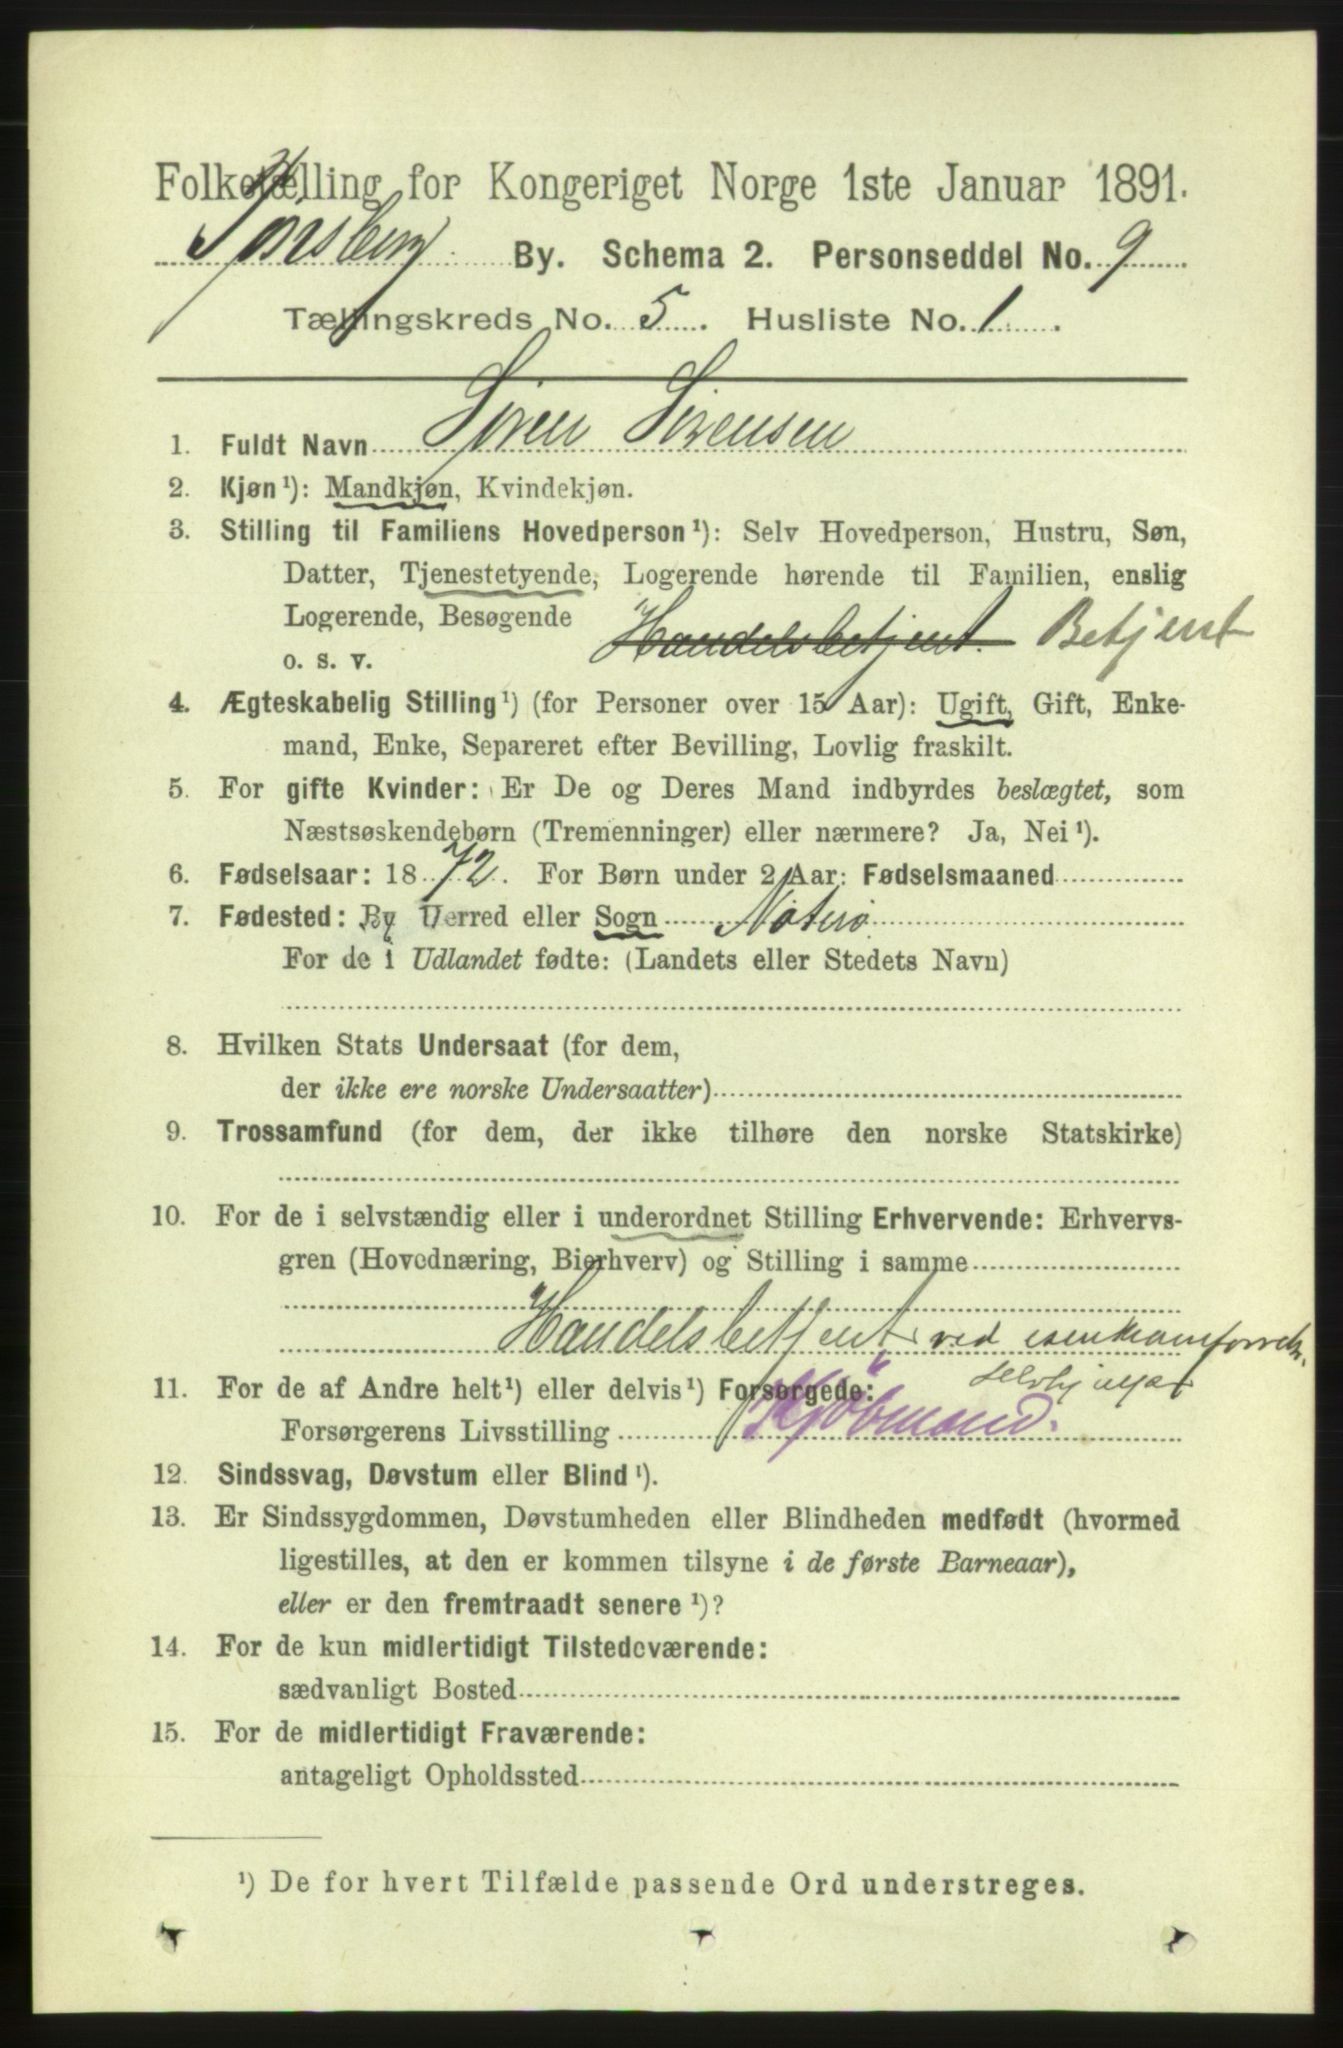 Folketælling for Kongeriget Norge 1ste Januar 1891.
Tønsberg By. Schema 2. Personseddel No. 9
Tællingskreds No. 5. Husliste No. 1.
1. Fuldt Navn Sören Sörensen
2. Kjøn¹): Mandkjøn, Kvindekjøn.
3. Stilling til Familiens Hovedperson¹): Selv Hovedperson, Hustru, Søn,
Datter, Tjenestetyende, Logerende hørende til Familien, enslig
Logerende, Besøgende
o. s. v. Handelsbetjent. Betjent
4. Ægteskabelig Stilling¹) (for Personer over 15 Aar): Ugift, Gift, Enke-
mand, Enke, Separeret efter Bevilling, Lovlig fraskilt.
5. For gifte Kvinder: Er De og Deres Mand indbyrdes beslægtet, som
Næstsøskendebørn (Tremenninger) eller nærmere? Ja, Nei¹).
6. Fødselsaar: 1872. For Børn under 2 Aar: Fødselsmaaned
7. Fødested: By Herred eller Sogn Nøterø
For de i Udlandet fødte: (Landets eller Stedets Navn)
8. Hvilken Stats Undersaat (for dem,
der ikke ere norske Undersaatter)
9. Trossamfund (for dem, der ikke tilhøre den norske Statskirke)
10. For de i selvstændig eller i underordnet Stilling Erhvervende: Erhvervs-
gren (Hovednæring, Bierhverv) og Stilling i samme
Handelsbetjent ved isenkramforretn.
11. For de af Andre helt¹) eller delvis¹) Forsørgede:
Forsørgerens Livsstilling Kjøbmand.
12. Sindssvag, Døvstum eller Blind¹).
13. Er Sindssygdommen, Døvstumheden eller Blindheden medfødt (hvormed
ligestilles, at den er kommen tilsyne i de første Barneaar),
eller er den fremtraadt senere¹)?
14. For de kun midlertidigt Tilstedeværende:
sædvanligt Bosted
15. For de midlertidigt Fraværende:
antageligt Opholdssted
¹) De for hvert Tilfælde passende Ord understreges.